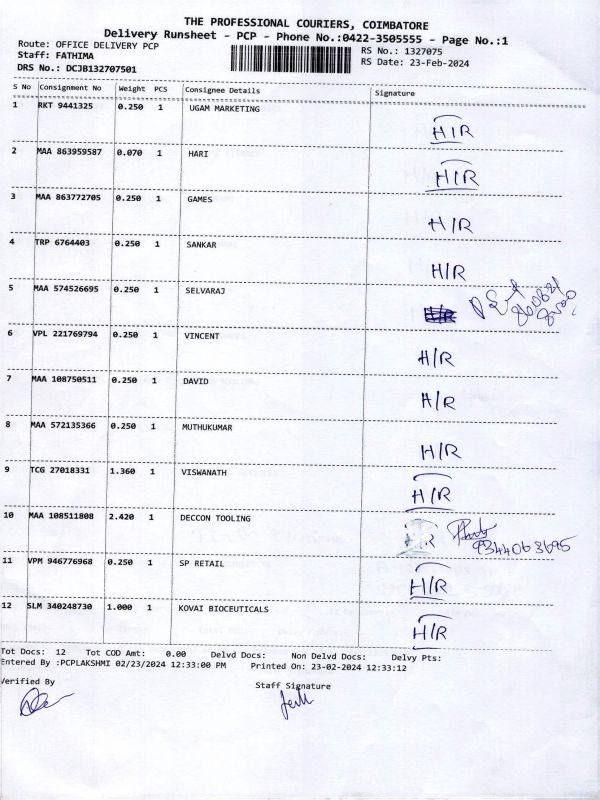 THE PROFESSIONAL COURIERS, COIMBATORE
Delivery Runsheet - PCP - Phone No.:0422-3505555 - Page No.:1
Route: OFFICE DELIVERY PCP RS No.: 1327075
Staff: FATHIMA RS Date: 23-Feb-2024
DRS No.: DCJB132707501
S No Consignment No Weight PCS Consignee Details Signature
1 RKT 9441325 0.250 1 UGAM MARKETING H/R
2 MAA 863959587 0.070 1 HARI H/R
3 MAA 863772705 0.250 1 GAMES H/R
4 TRP 6764403 0.250 1 SANKAR H/R
5 MAA 574526695 0.250 1 SELVARAJ
6 VPL 221769794 0.250 1 VINCENT H/R
7 MAA 108750511 0.250 1 DAVID H/R
8 MAA 572135366 0.250 1 MUTHUKUMAR H/R
9 TCG 27018331 1.360 1 VISWANATH H/R
10 MAA 108511808 2.420 1 DECCON TOOLING 9344063695
11 VPM 946776968 0.250 1 SP RETAIL H/R
12 SLM 340248730 1.000 1 KOVAI BIOCEUTICALS H/R
Tot Docs: 12 Tot COD Amt: 0.00 Delvd Docs: Non Delvd Docs: Delvy Pts:
Entered By :PCPLAKSHMI 02/23/2024 12:33:00 PM Printed On: 23-02-2024 12:33:12
Verified By Staff Signature